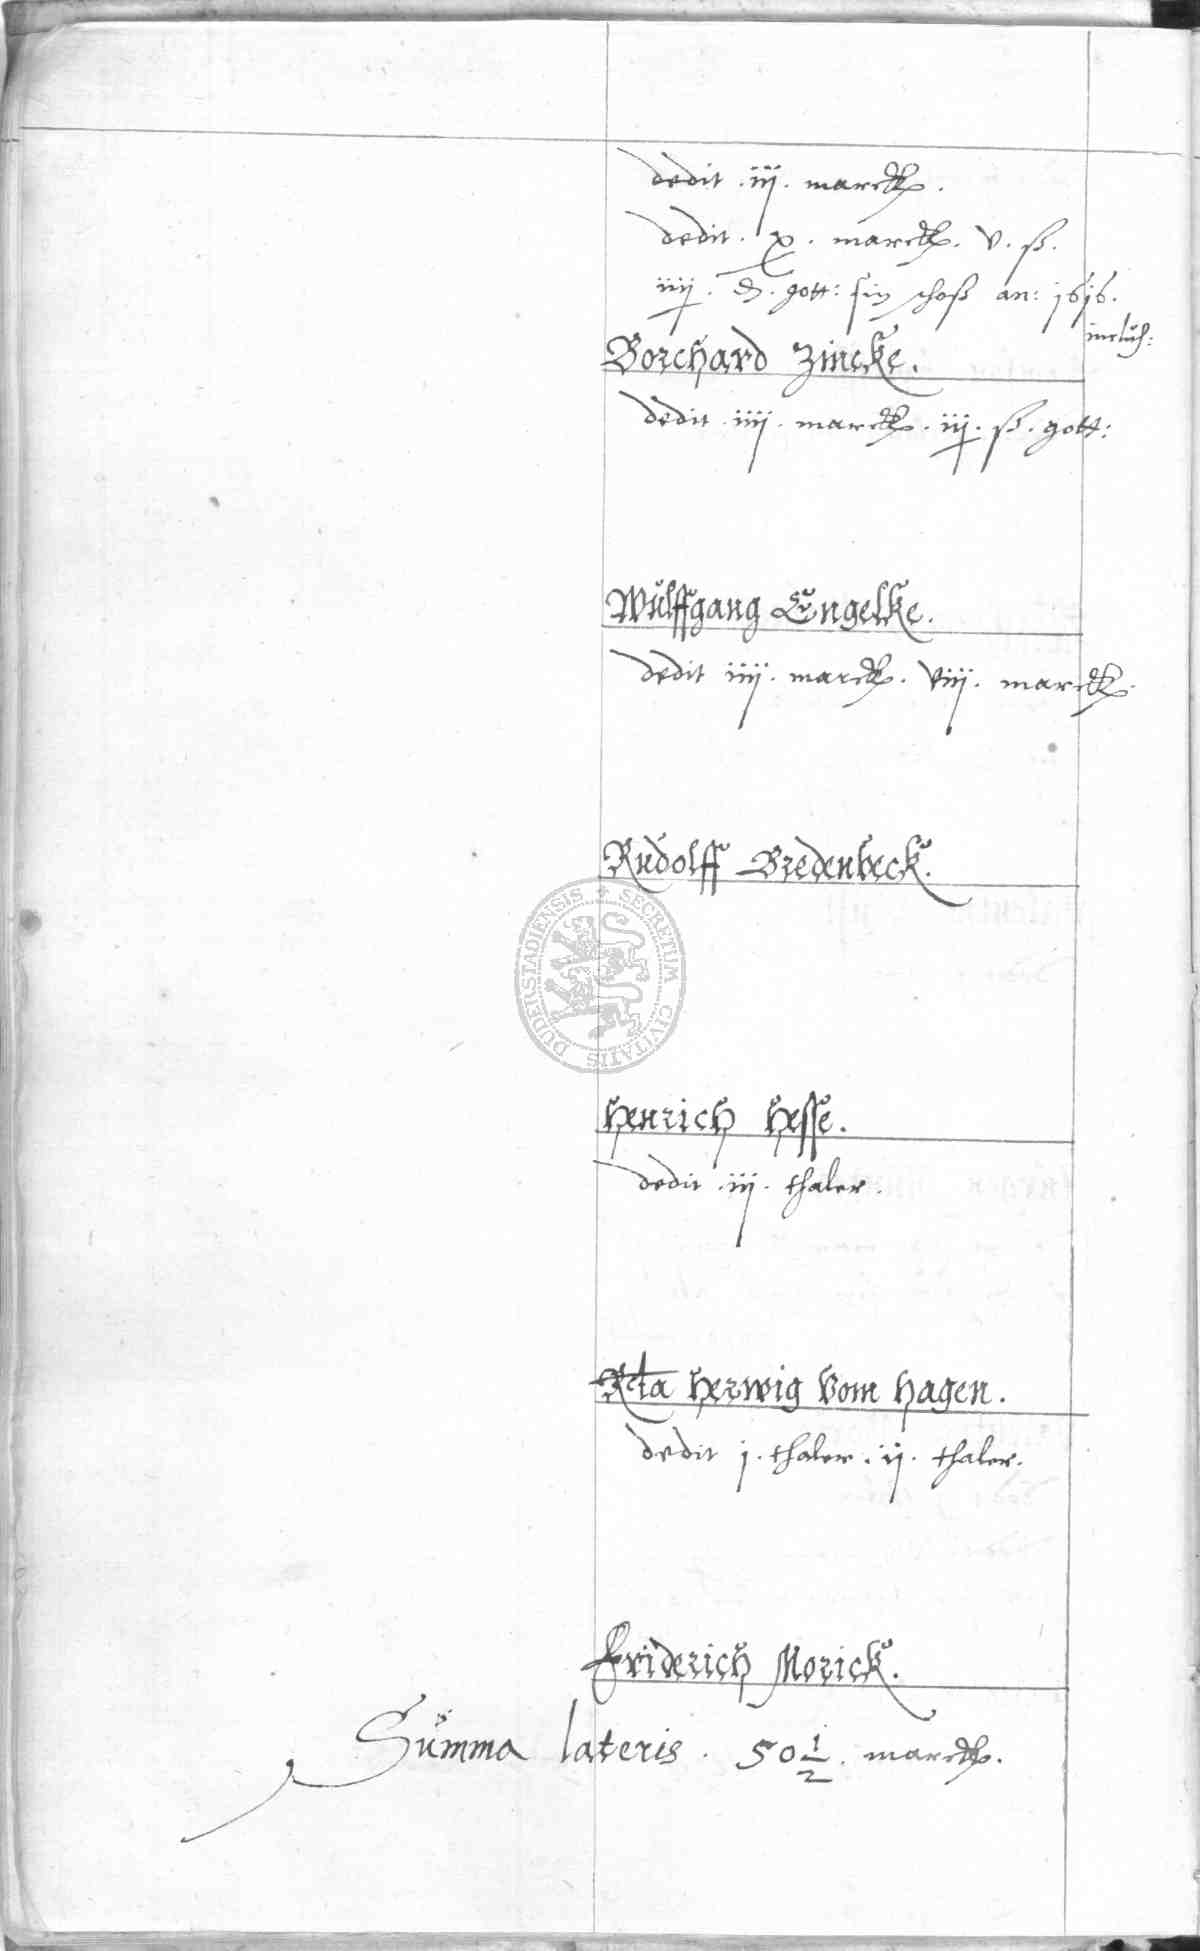 dedit . iij . marck .
dedit . x . marck . v . ß .
iiij . ₰ . gott: sin schoß an: 1616 .
inclus:
Borchard Zincke .
dedit . iiij . marck . iij . ß . gott:
Wulffgang Engelke .
dedit iiij . marck . viij . marck .
Rudolff Bredenbeck .
SECRETUM CIVITATIS DUDERSTADIENSIS
Henrich Hesse .
dedit . iij . thaler .
Herwig vom Hagen .
dedit j . thaler . ij . thaler .
Friderich Morick .
Summa lateris . 50 1/2 . marck .